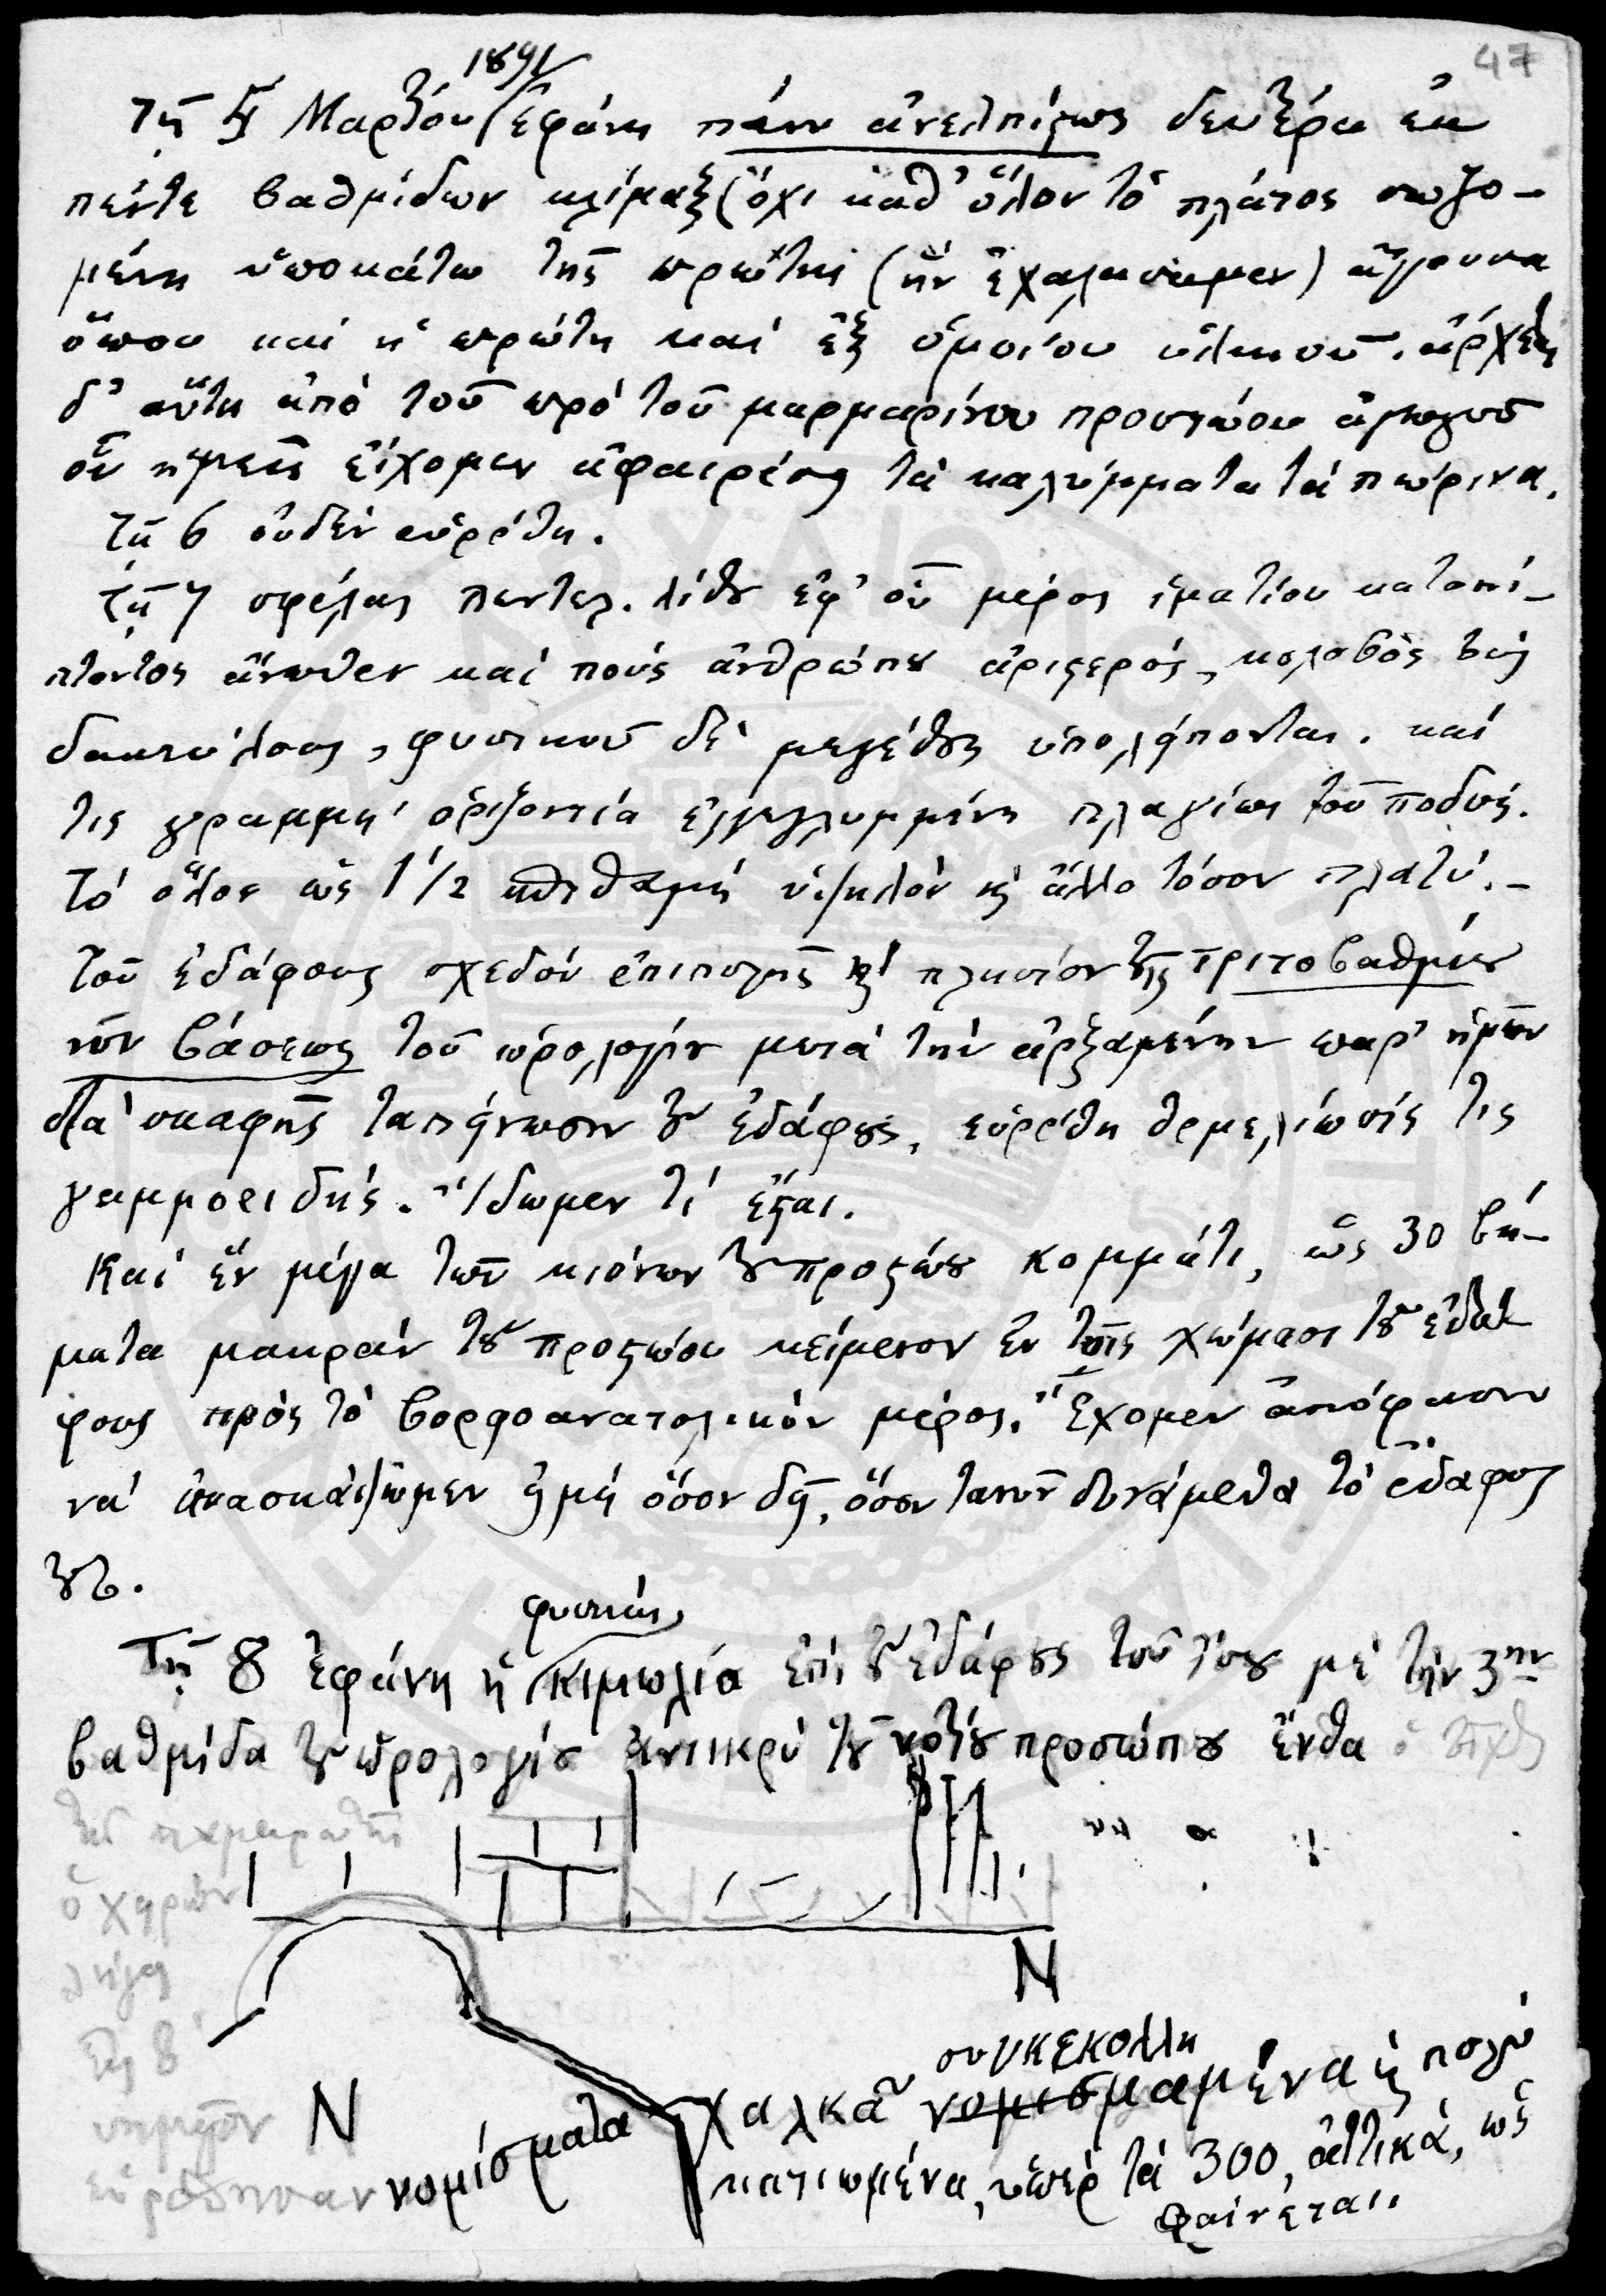 47
1891
Τῇ 5 Μαρτίου ἐφάνη πάνυ ἀνελπίστως δευτέρα ἐκ
πέντε βαθμίδων κλίμαξ (ὄχι καθ' ὅλον τὸ πλάτος σωζο-
μένη ὑποκάτω τῆς πρώτης (ἣν ἐχαλάσαμεν) ἄγουσα
ὅπου καὶ ἡ πρώτη καὶ ἐξ ὁμοίου ὑλικοῦ. ἄρχεται
δ' αὕτη ἀπὸ τοῦ πρὸ τοῦ μαρμαρίνου προστώου ἀγωγοῦ
οὗ ἡμεῖς εἴχομεν ἀφαιρέσῃ τὰ καλύμματα τὰ πώρινα.
Τῇ 6 οὐδὲν εὑρέθη.
Τῇ 7 σφέλας πεντελ. λίθου ἐφ' οὗ μέρος ἱματίου κατοπί-
πτοντος ἄνωθεν καὶ ποὺς ἀνθρώπου ἀριστερός, κολοβὸς τοὺς
δακτύλους, φυσικοῦ δὲ μεγέθους ὑπολείπονται. καὶ
τις γραμμὴ ὁριζοντία ἐγγεγλυμμένη πλαγίως τοῦ ποδός.
Τὸ ὅλον ὡς 1 1/2 σπιθαμὴ ὑψηλὸν κ̀ ἄλλο τόσον πλατύ.-
Τοῦ ἐδάφους σχεδὸν ἐπιπολῆς κ̀ πλησίον τῆς τριτοβαθμίου
νῦν βάσεως τοῦ ὡρολογίου μετὰ τὴν ἀρξαμένην παρ' ἡμῶν
διὰ σκαφῆς ταπείνωσιν τοῦ ἐδάφους, εὑρέθη θεμελίωσίς τις
γαμμοειδής. Ἴδωμεν τί ἔσται.
Καὶ ἓν μέγα τῶν κιόνων τοῦ προστώου κομμάτι, ὡς 30 βή-
ματα μακρὰν τοῦ προστώου κείμενον ἐν τοῖς χώμασι τοῦ ἐδά-
φους πρὸς τὸ βορφοανατολικὸν μέρος. Ἔχομεν ἀπόφασιν
νὰ ἀνασκάψωμεν εἰ μὴ ὅσον δεῖ, ὅσον τανῦν δυνάμεθα τὸ ἔδαφος
τοῦτο.
φυσικῶς
Τῇ 8 ἐφάνη ἡ κιμωλία ἐπὶ τοῦ ἐδάφους τοῦ ἴσου μὲ τὴν 3ην
βαθμίδα τοῦ ὡρολογίου ἀντικρὺ τοῦ νοτίου προσώπου ἔνθα ὁ τοῖχος
ὁ
τῇ 8
εὑρέθησαν νομίσματα
N
N
συγκεκολλη
χαλκᾶ νομισμαμένα κ̀ πολὺ
κατιωμένα, ὑπὲρ τὰ 300, ἀττικά, ὡς
φαίνεται.